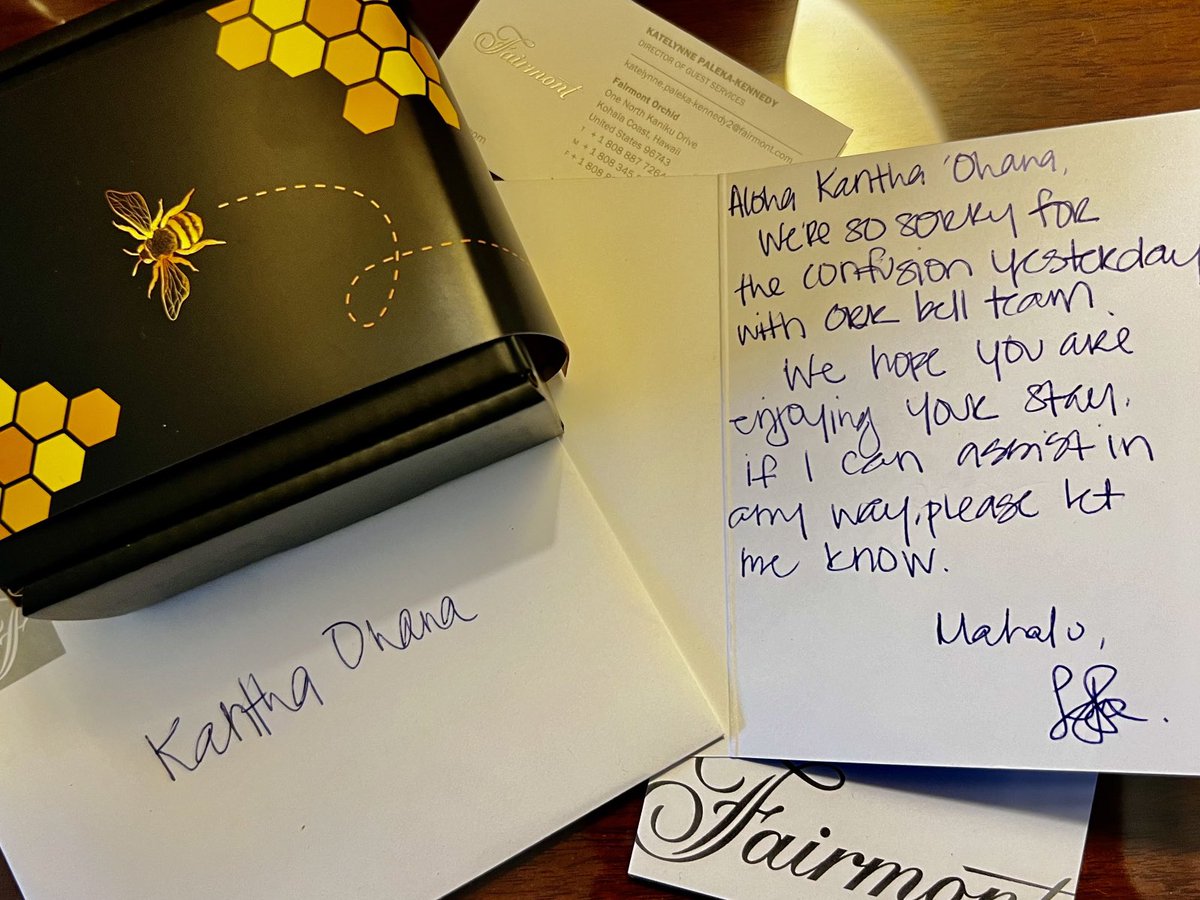 Fairmont
KATELYNNE PALEKA-KENNEDY
DIRECTOR OF GUEST SERVICES
katelynne.paleka-kennedy2@fairmont.com
Fairmont Orchid
One North Kaniku Drive
Kohala Coast, Hawaii
United States 96743
T + 1 808 887 7264
M + 1 808 345
F + 1 808
.com
Aloha Kantha 'Ohana,
We're so sorry for
the confusion yesterday
with our bell team.
We hope you are
enjoying your stay.
if I can assist in
any way, please let
me know.
Mahalo,
Kantha Ohana
Fairmont